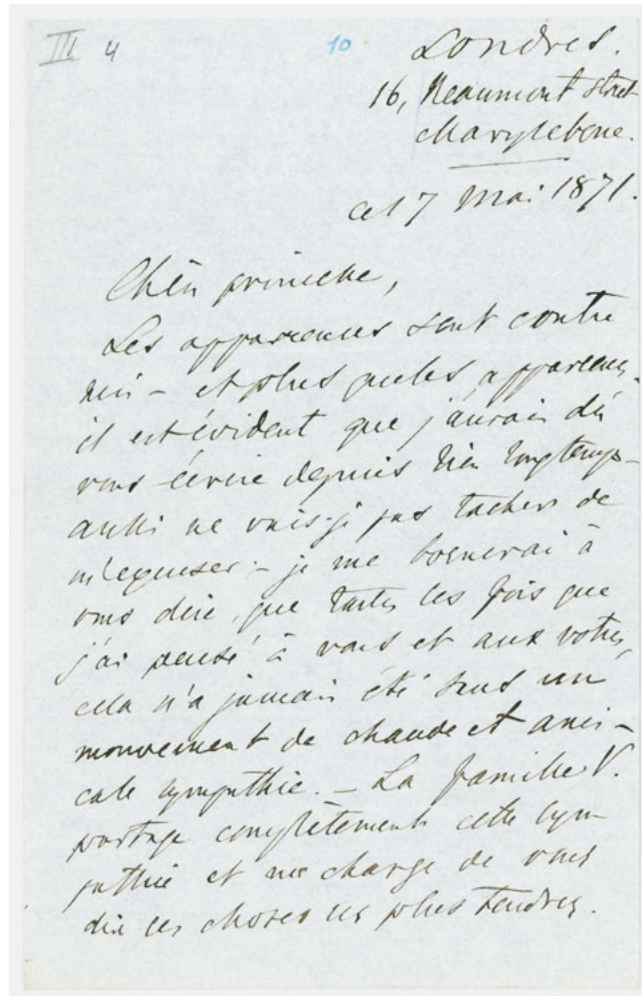 III 4 10
Londres.
16, Beaumont Street
Marylebone.
ce 17 Mai 1871.
Chère princesse,
Les apparences sont contre
moi – et plus que les apparences.
il est évident que j'aurais dû
vous écrire depuis bien longtemps –
aussi ne vais-je pas tâcher de
m'excuser – je me bornerai à
vous dire, que toutes les fois que
j'ai pensé à vous et aux vôtres,
cela n'a jamais été sans un
mouvement de chaude et ami-
cale sympathie. – La famille V.
partage complètement cette sym-
pathie et me charge de vous
dire les choses les plus tendres.